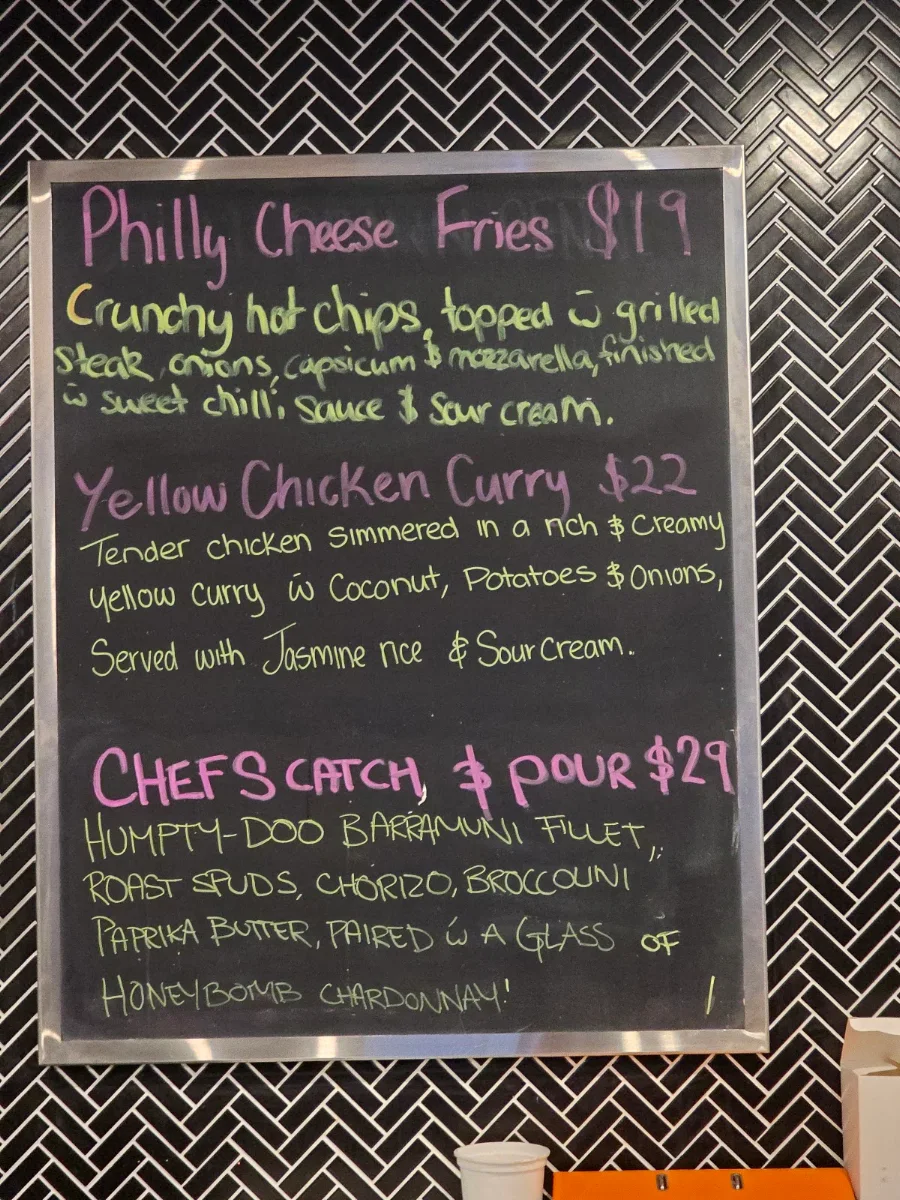 Philly Cheese Fries $19
Crunchy hot chips, topped w̄ grilled
steak, onions, capsicum & mozzarella, finished
w̄ sweet chilli sauce & sour cream.
Yellow Chicken Curry $22
Tender chicken simmered in a rich & creamy
yellow curry w̄ Coconut, Potatoes & Onions,
Served with Jasmine rice & Sour Cream.
CHEFS CATCH, & POUR $29
HUMPTY-DOO BARRAMUNI FILLET,
ROAST SPUDS, CHORIZO, BROCCOLINI
PAPRIKA BUTTER, PAIRED w̄ A GLASS OF
HONEYBOMB CHARDONNAY!